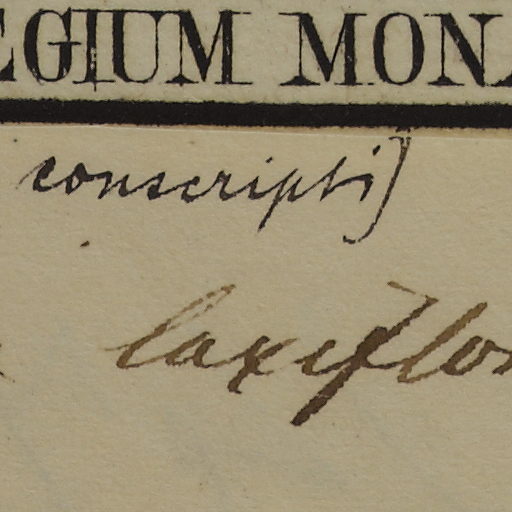 EGIUM MONA
conscripti]
laxiflor